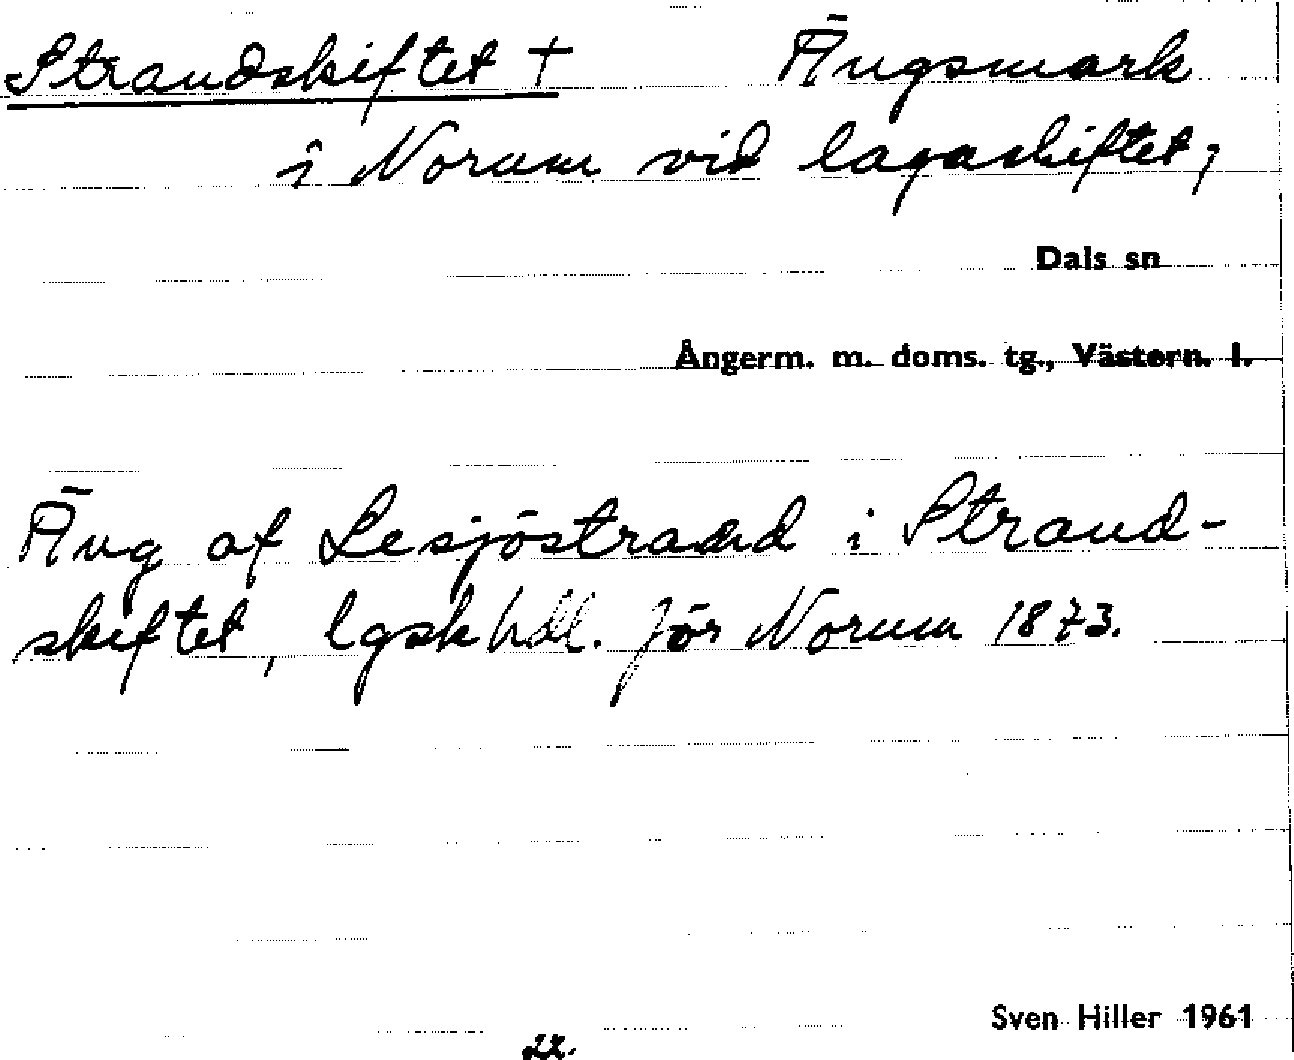 Strandskiftet † Ängsmark
i Norum vid lagaskiftet,
Dals sn
Ångerm. m. doms. tg., Västern. l.
Äng af Lesjöstrand i Strand-
skiftet, lgsk hdl. för Norum 1873.
Sven Hiller 1961